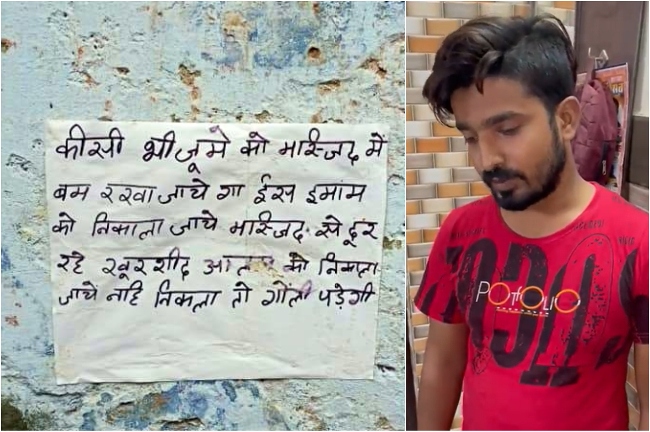 कीसी भी जूमे को मास्जिद में
बम रखा जाये गा ईस इमाम
को निकाला जाये मास्जिद से दूर
रहे खूरशीद आलम को निकाला
जाये नहि निकला तो गोली पड़ेगी
PORTFOLIO